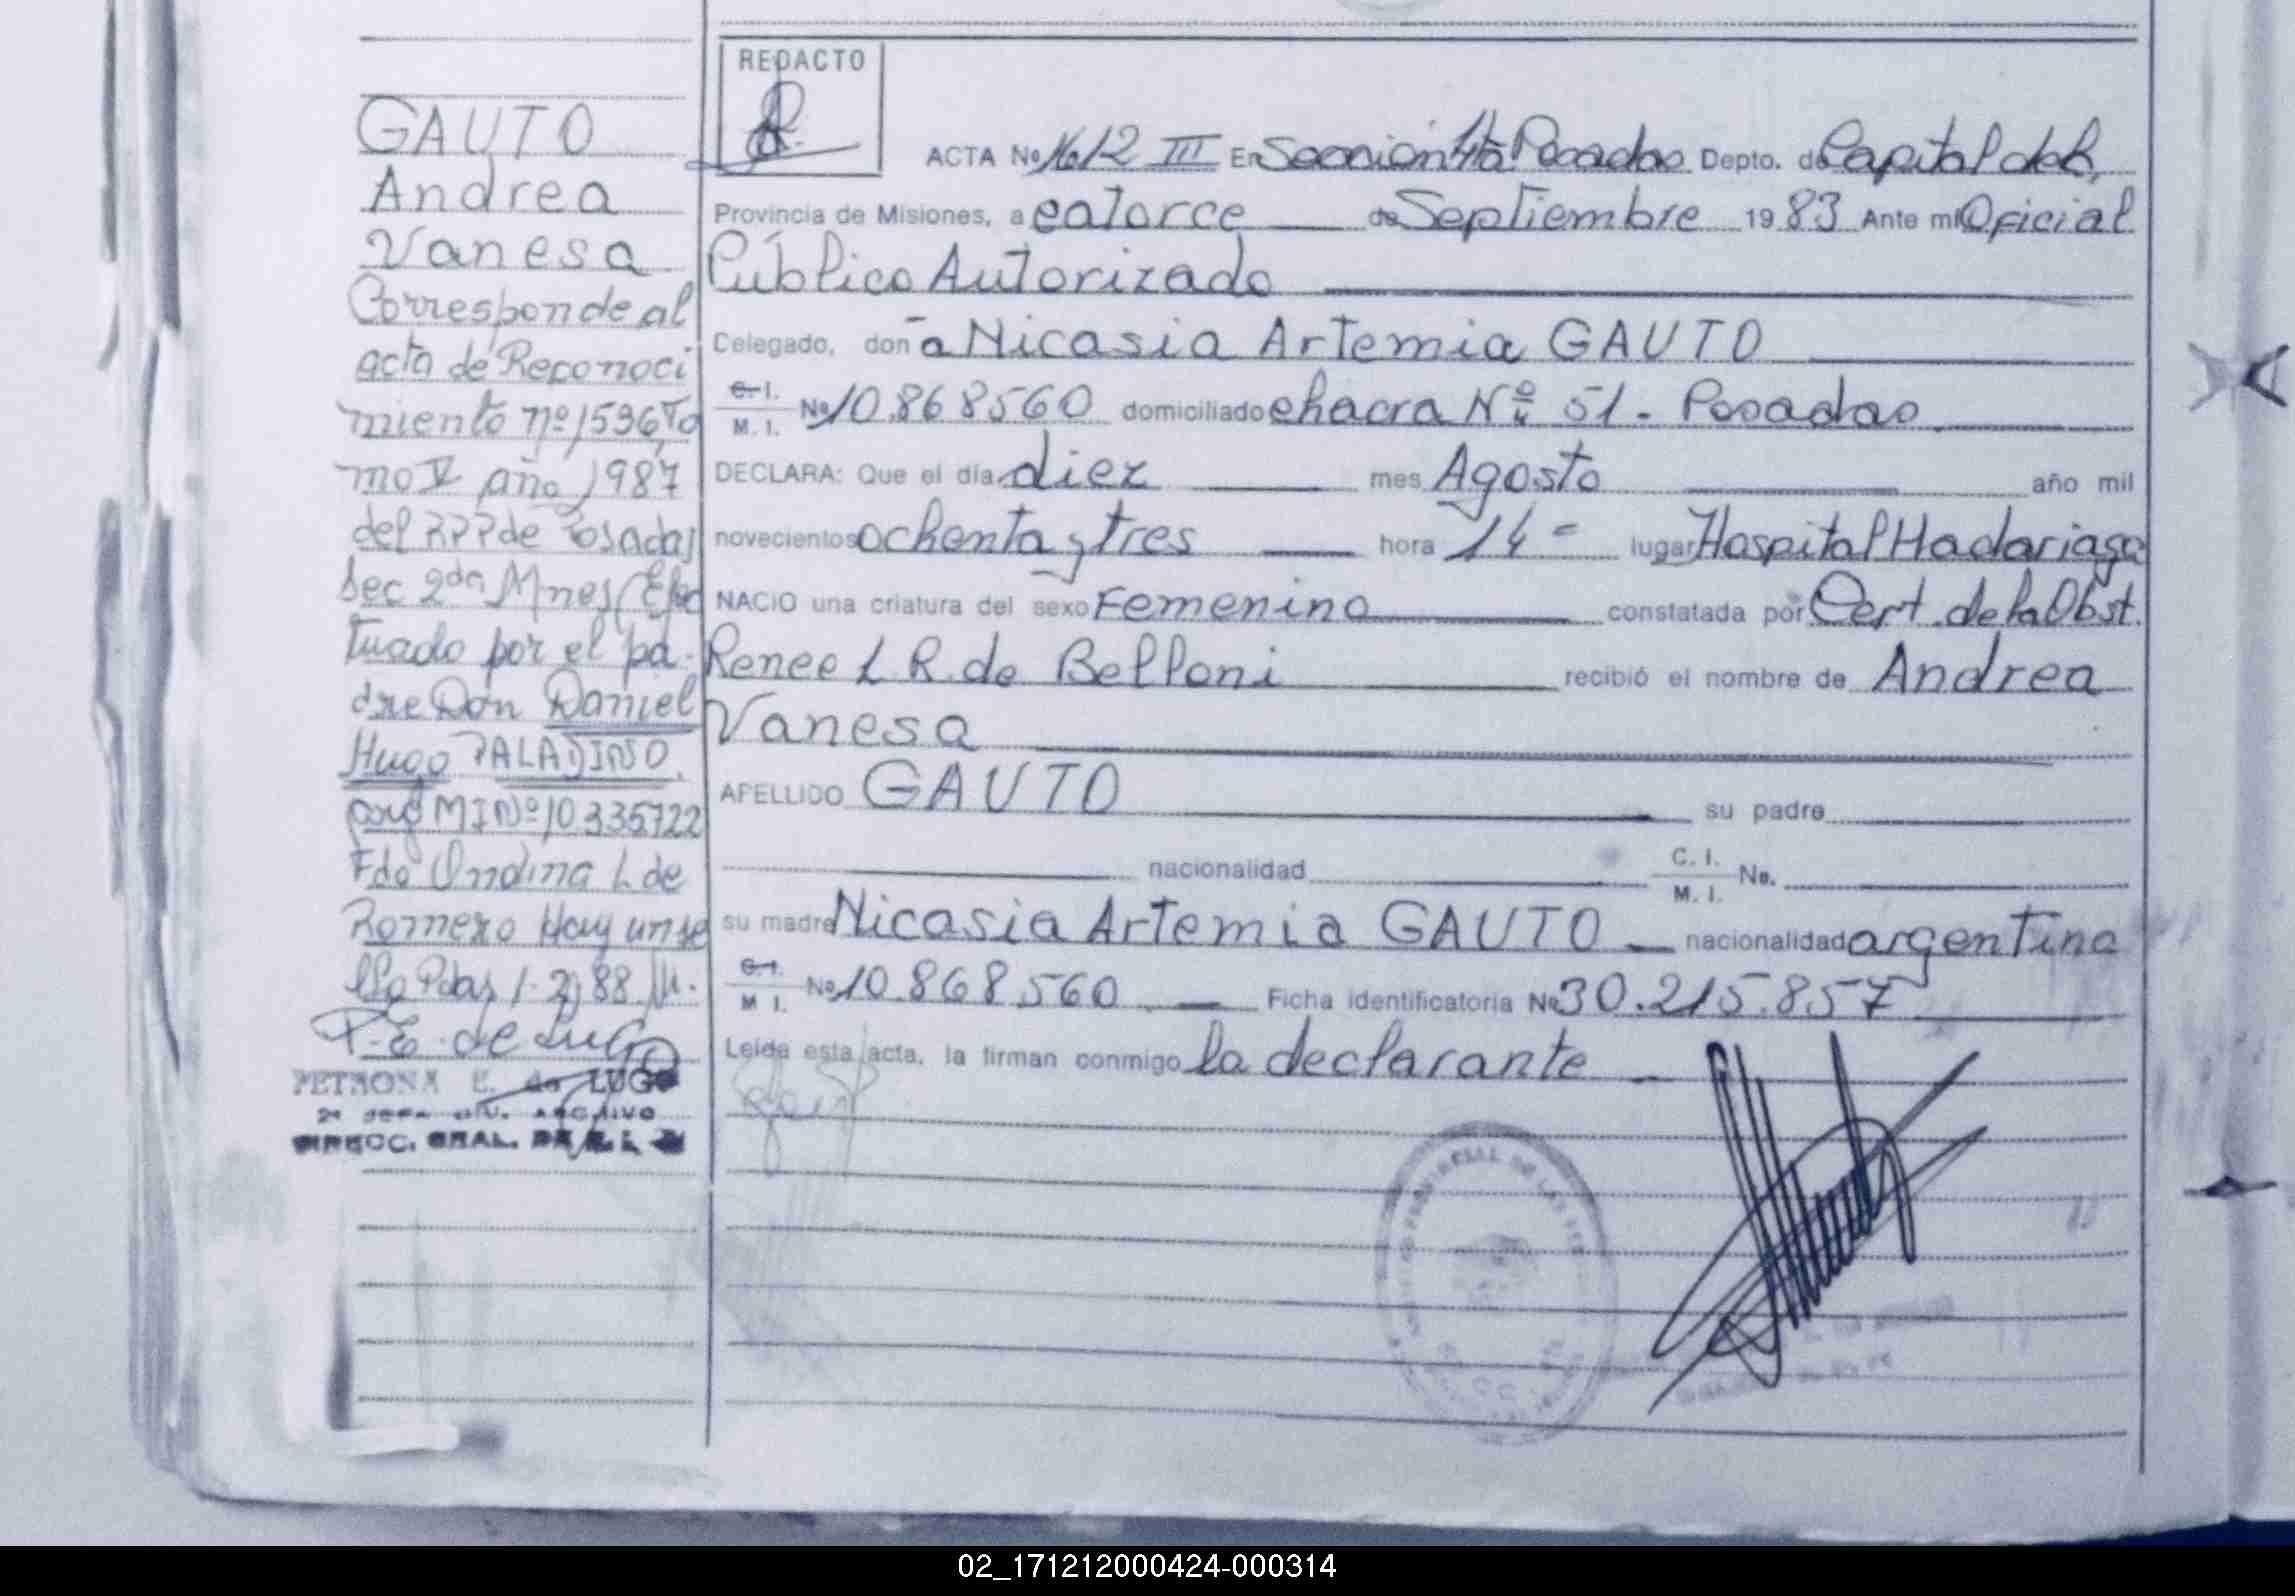 GAUTO
Andrea
Vanesa
Corresponde al
acta de Reconoci
miento nº 1596, To
mo V año 1987
del RPP de Posadas
Sec 2da Mnes, Efec
tuado por el pa-
dre Don Daniel
Hugo PALADINO.
arg MI Nº 10335722
Fdo Ondina L de
Romero Hay un se
llo Pdas 1-2-88
P.E. de Lugo
PETRONA E. de LUGO
2ª JEFA DIV. ARCHIVO
DIRECC. GRAL. DE
REDACTO
ACTA No 1612 III En Sección 4ta Posadas Depto. de Capital de la
Provincia de Misiones, a catorce de Septiembre 1983 Ante mi Oficial
Público Autorizado
Delegado, doña Nicasia Artemia GAUTO
C. I.
M. I. No 10.868560 domiciliado chacra Nº 51 - Posadas
DECLARA: Que el día diez mes Agosto año mil
novecientos ochenta y tres hora 14 - lugar Hospital Madariaga
NACIO una criatura del sexo Femenino constatada por Cert. de la Obst.
Renee L R. de Belloni recibió el nombre de Andrea
Vanesa
APELLIDO GAUTO su padre
nacionalidad C. I. M. I. No.
su madre Nicasia Artemia GAUTO nacionalidad argentina
C. I.
M I. No 10.868.560 Ficha identificatoria No 30.215.857
Leída esta acta, la firman conmigo la declarante
02_171212000424-000314